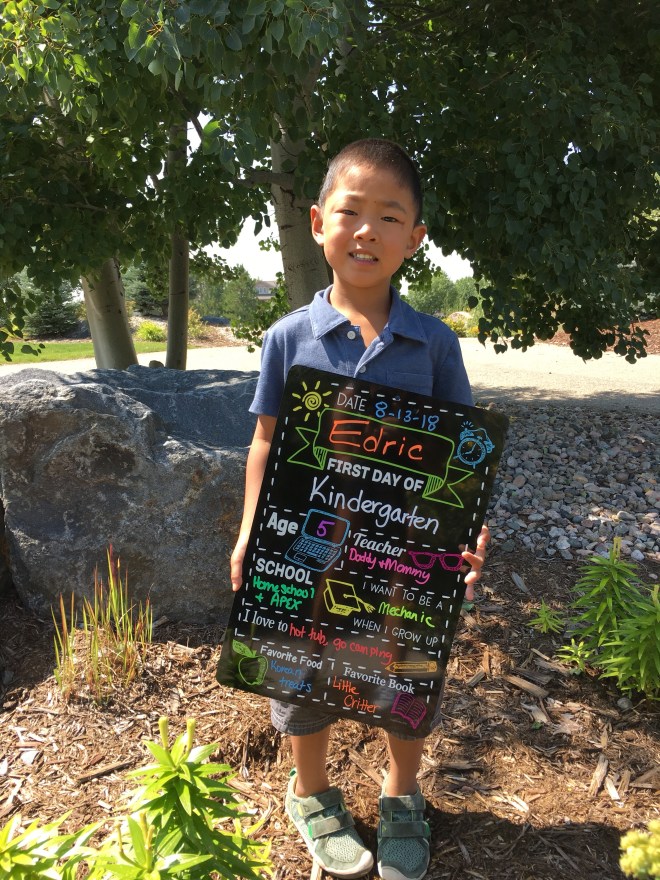 DATE 8-13-18
Edric
FIRST DAY OF
Kindergarten
Age 5
Teacher
Daddy + Mommy
SCHOOL
Homeschool
+ APEX
I WANT TO BE A
Mechanic
WHEN I GROW UP
I love to hot tub, go camping
Favorite Food
Korean
treats
Favorite Book
Little
Critter